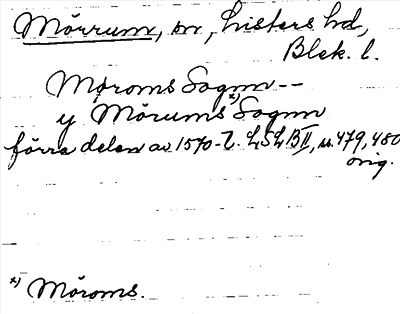 Mörrum, sn, Listers hd,
Blek. l.
Møroms Sognn --
y Mörums x) Sognn
förra delen av 1570-t. LSL B II, s. 479, 480
orig.
x) Möroms.